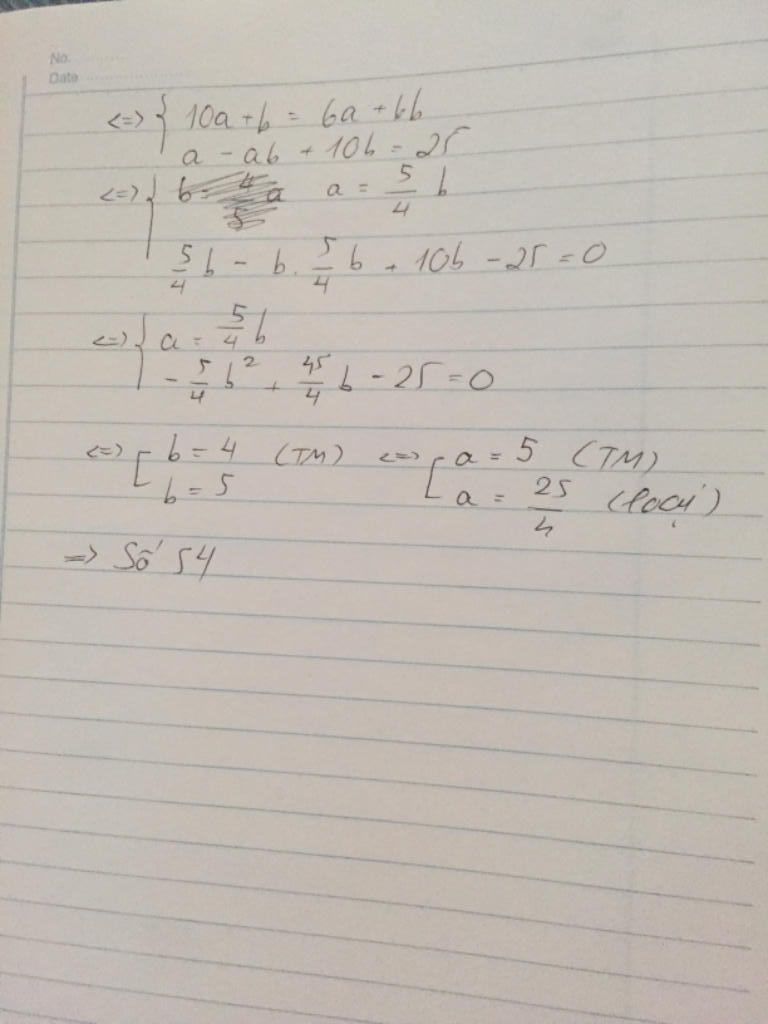 No.
Date
<=> { 10a + b = 6a + 6b
a - ab + 10b = 25
<=> { a = 5/4 b
5/4 b - b. 5/4 b + 10b - 25 = 0
<=> { a = 5/4 b
- 5/4 b² + 45/4 b - 25 = 0
<=> [ b = 4 (TM) <=> [ a = 5 (TM)
b = 5 a = 25/4 (loại)
=> Số 54